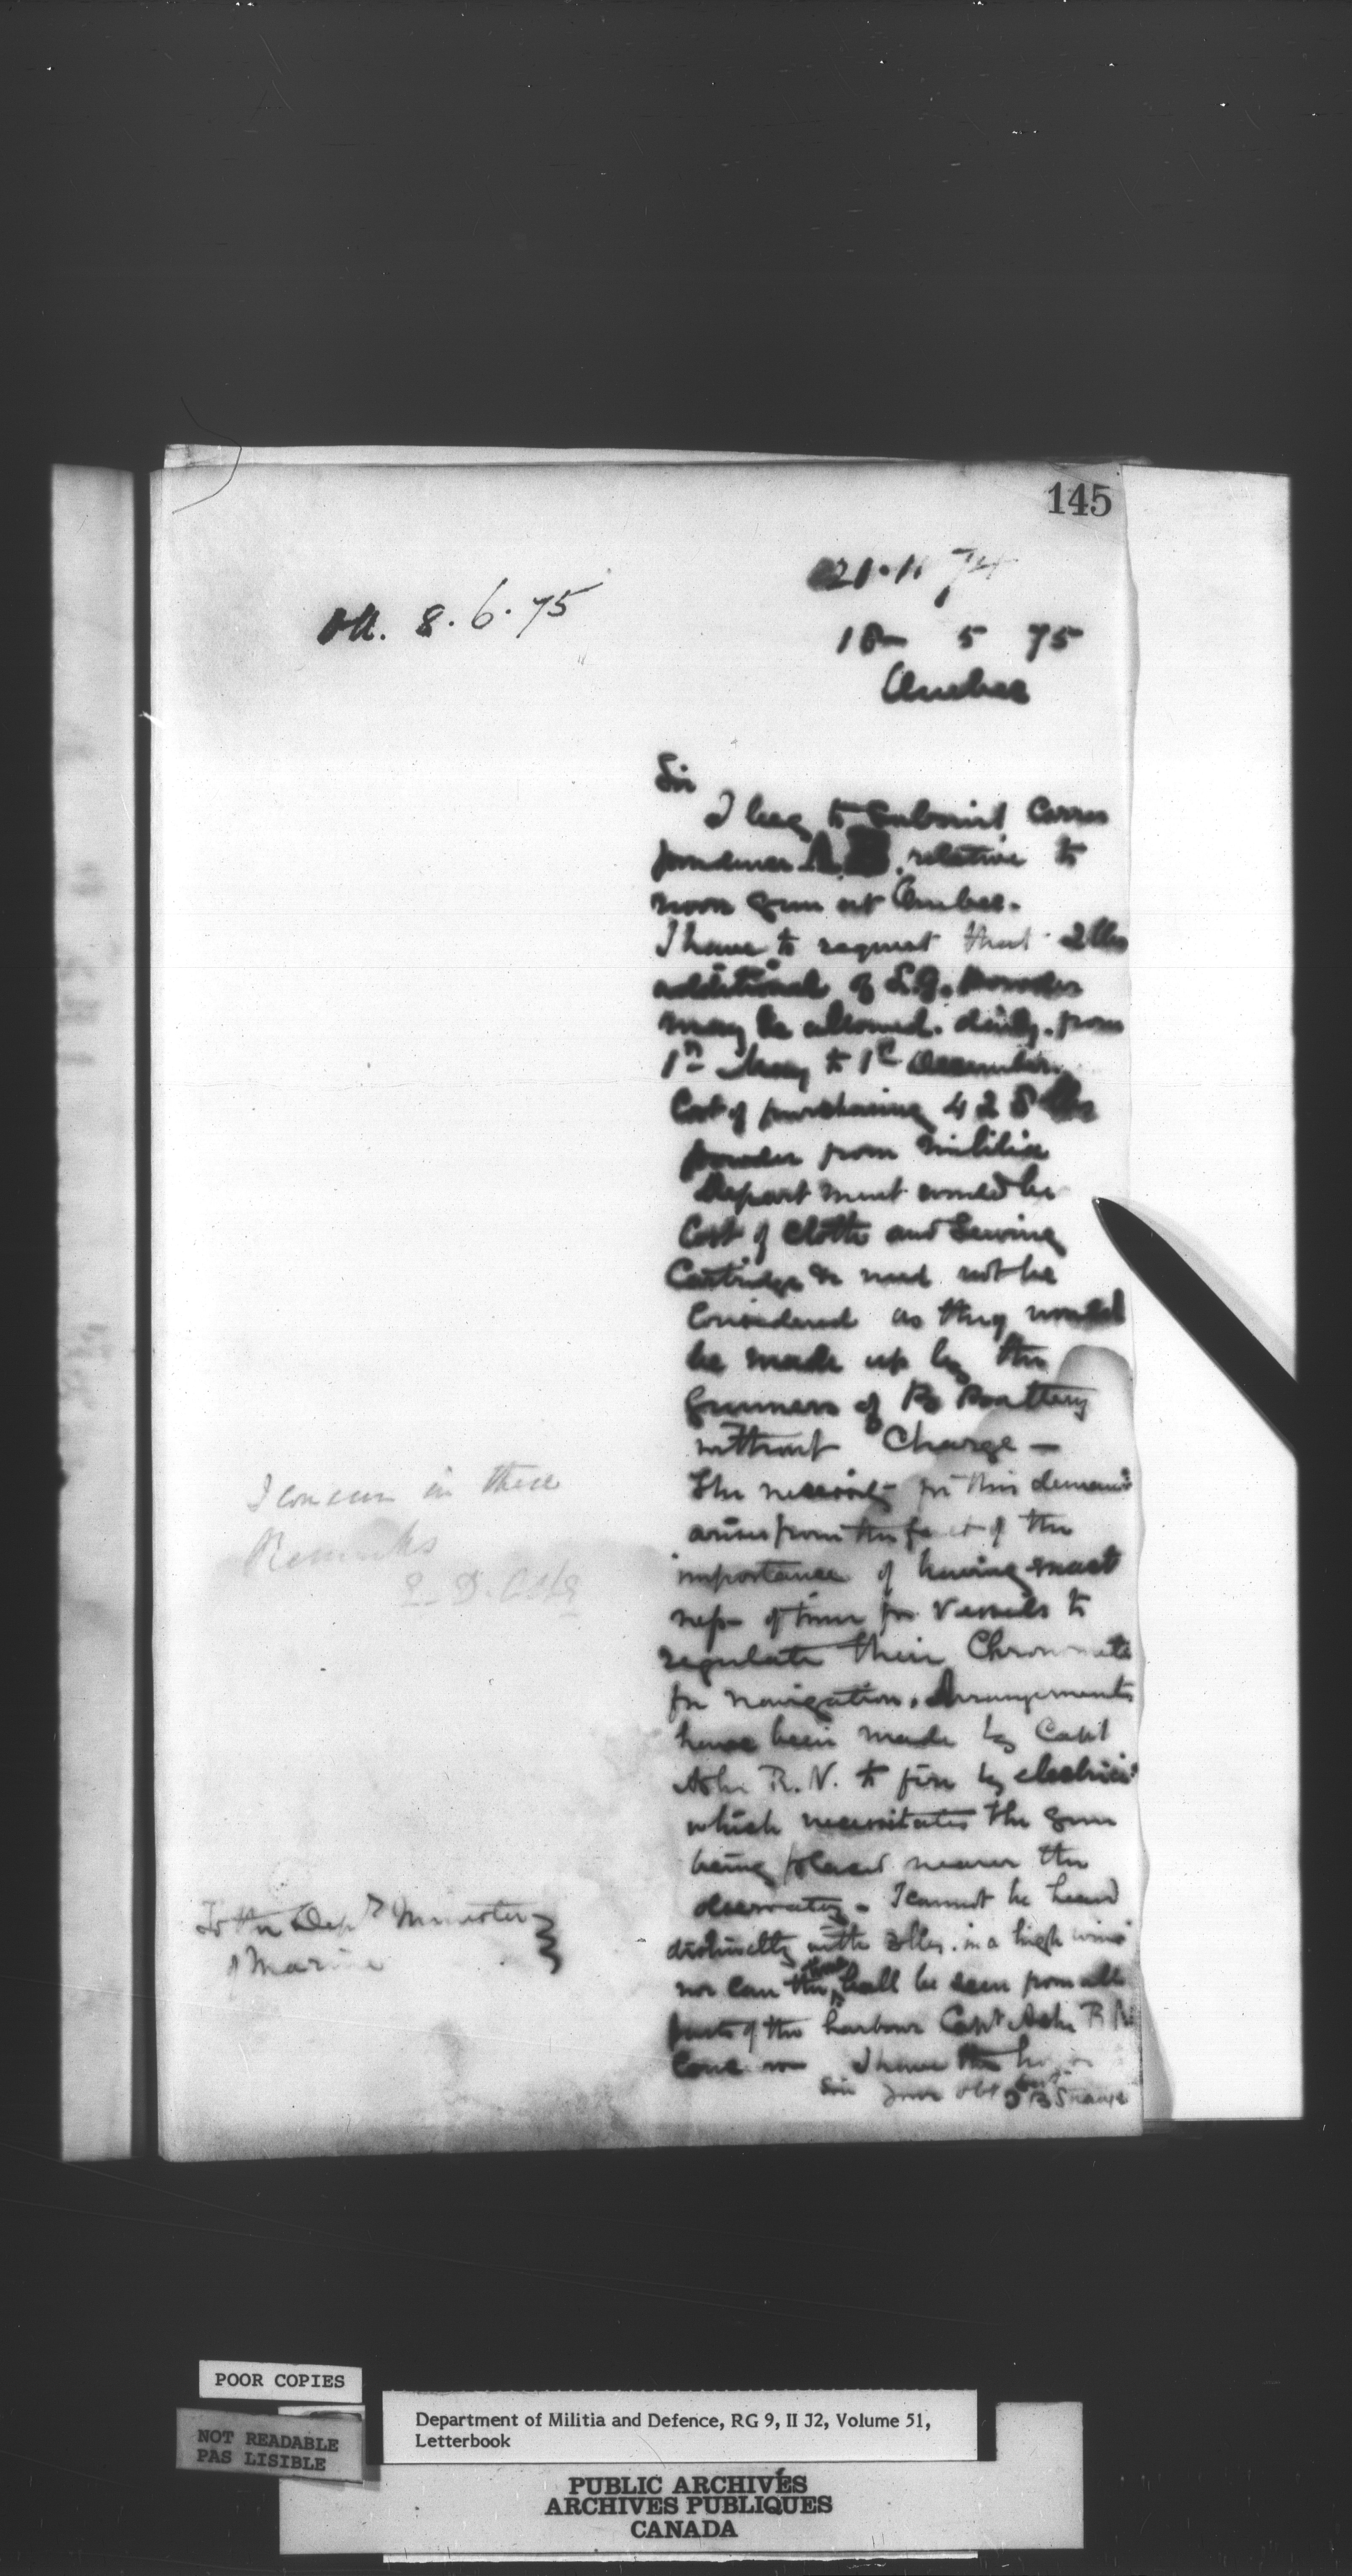 145
21.11 74
8.6.75
18- 5 75
Quebec
Sir
I beg to submit Corres
pondence relative to
noon gun at Quebec.
I have to request that 2 lbs
additional of L.G. Powder
may be allowed. daily. from
1st May to 1st December.
Cost of purchasing 428 lbs
powder from Militia
Department would be
Cost of Cloth and Sewing
Cartridge &c need not be
Considered as they would
be made up by the
Gunners of B Battery
without Charge —
The necessity for this demand
arises from the fact of the
importance of having exact
of time for Vessels to
regulate their Chronomete
for navigation. Arrangements
have been made by Capt
Ashe R.N. to fire by electrici
which necessitates the gun
being placed nearer the
observatory. I cannot be heard
distinctly with 3 lbs. in a high wind
nor can the time ball be seen from all
parts of the harbour Capt Ashe R N
I have the honor
Sir your Obt Servt
T B Strange
I concur in these
Remarks
E. D. Ashe
To the Depy Minister
of Marine
POOR COPIES
NOT READABLE
PAS LISIBLE
Department of Militia and Defence, RG 9, II J2, Volume 51,
Letterbook
PUBLIC ARCHIVES
ARCHIVES PUBLIQUES
CANADA